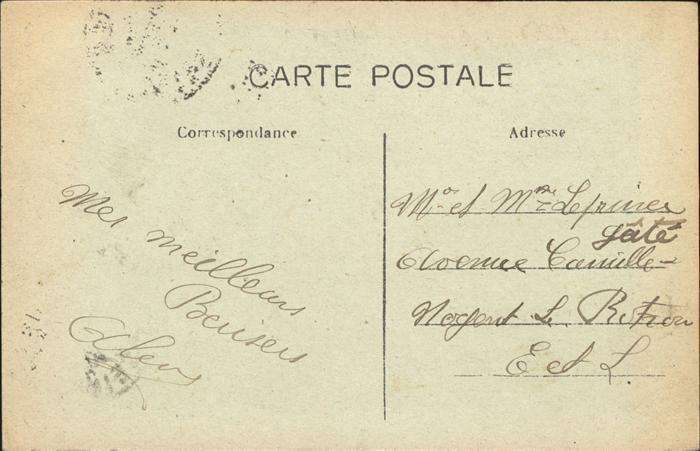 CARTE POSTALE
Correspondance
Adresse
Mes meilleurs
Baisers
Mr et Mme
gâté
Avenue Camille
Nogent Le Rotrou
E et L